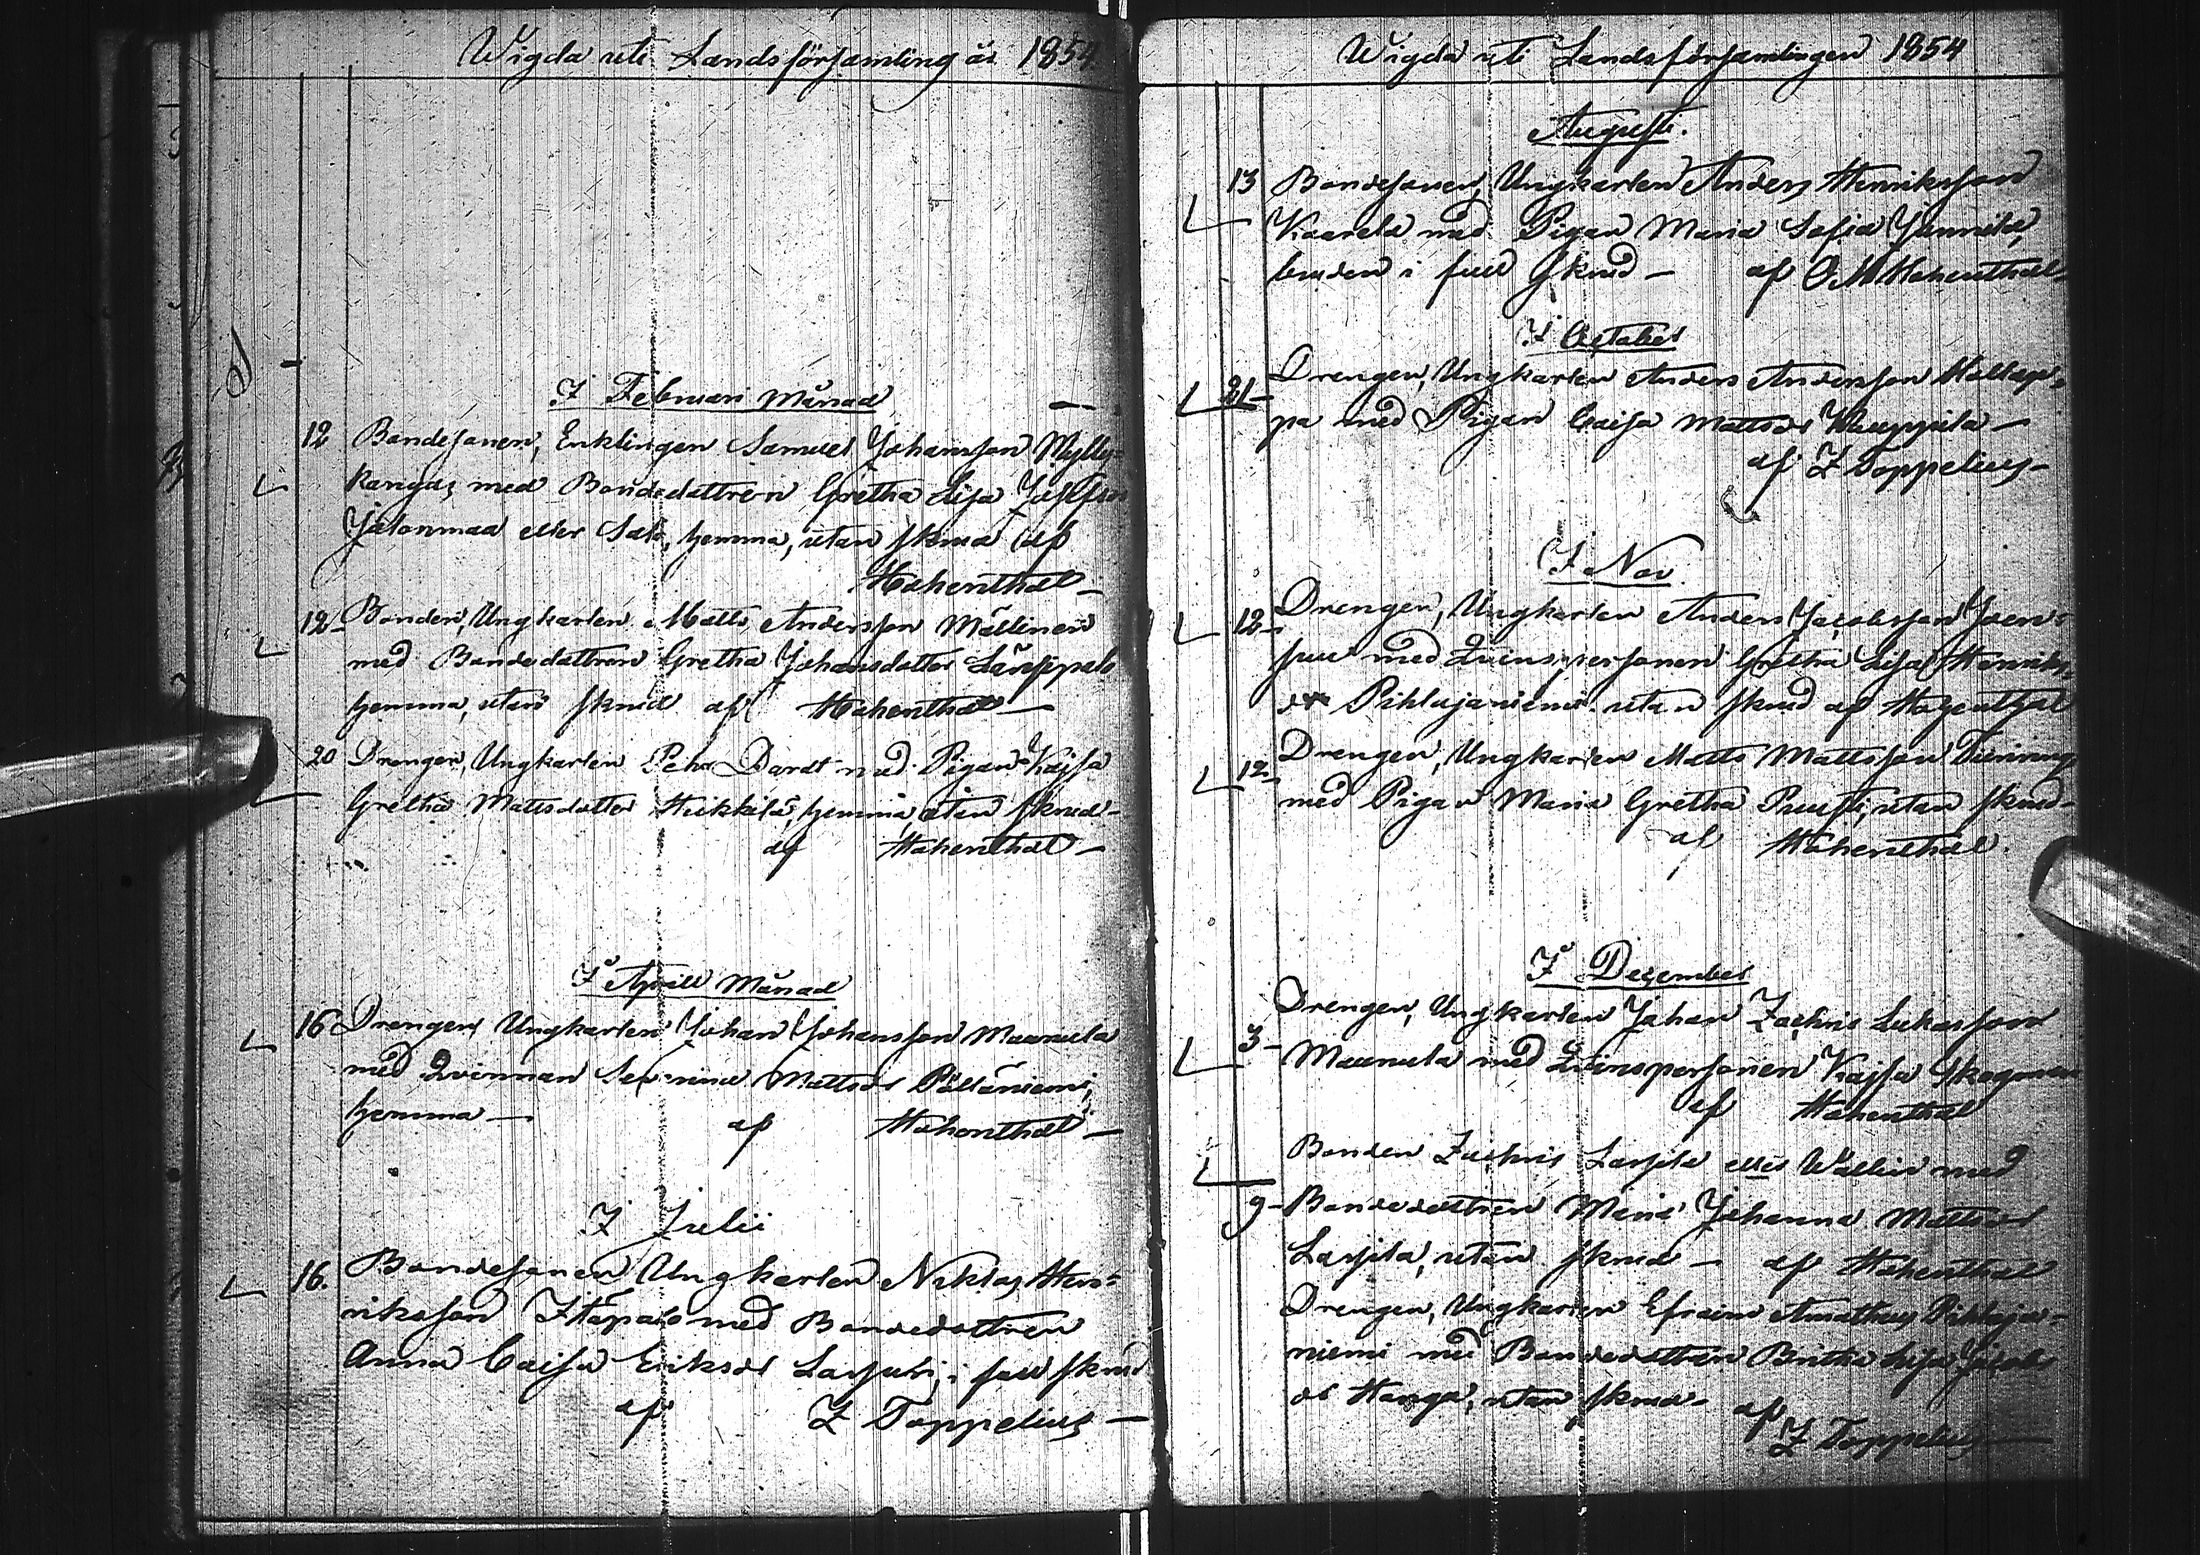 Wigda uti Landsförsamling år 1854
I Februari Månad
12 Bondesonen, Enklingen Samuel Johansson Mylly-
kangas med Bondedottren Gretha Lisa Josefsd
Jalonmaa eller Salo, hemma, utan skrud af
Hohenthal -
12 Bonden, Ungkarlen Matts Andersson Mällinen
med Bondedottren Gretha Johansdotter
hemma, utan skrud af Hohenthal -
20 Drengen, Ungkarlen Pehr Dordt med Pigan Kajsa
Gretha Mattsdotter Heikkilä, hemma, utan skrud -
af Hohenthal -
I Aprill Månad
16 Drengen Ungkarlen Johan Johansson Maunula
med Qvinnan Severina Mattsdr Pölläniemi,
hemma - af Hohenthal -
I Julii
16. Bondesonen Ungkarlen Niklas Hen-
riksson med Bondedottren
Anna Caisa Eriksdr i full skrud
af Z Toppelius -
Wigda uti Landsförsamlingen 1854
Augusti.
13 Bondesonen, Ungkarlen Anders Henriksson
Kaarela med Pigan Maria Sofia
bruden i full skrud - af O M Hohenthal
I October
21 - Drengen, Ungkarlen Anders Andersson
pa med Pigan Caisa Mattsdr Kauppila -
af Z Toppelius -
I Nov.
12 - Drengen, Ungkarlen Anders Jacobsson Joen-
suu med Qvinspersonen Gretha Lisa Henriks-
dr Pihlajaniemi utan skrud af Hohenthal
12 - Drengen, Ungkarlen Matts Mattsson
med Pigan Maria Gretha Puusti, utan skrud -
af Hohenthal.
I December
3 - Drengen, Ungkarlen Johan Zachris Lukasson
Maunula med Qvinspersonen Kajsa
af Hohenthal
Bonden Zachris Laspila eller Wallin med
9 - Bondedottren Maria Johanna Mattsdr
Laspila, utan skrud - af Hohenthal
Drengen, Ungkarlen Efraim Amathus Pihlaja-
niemi med Bondedottren Britha Lisa Jacobs
dr Hanga, utan skrud - af
Z Toppelius -